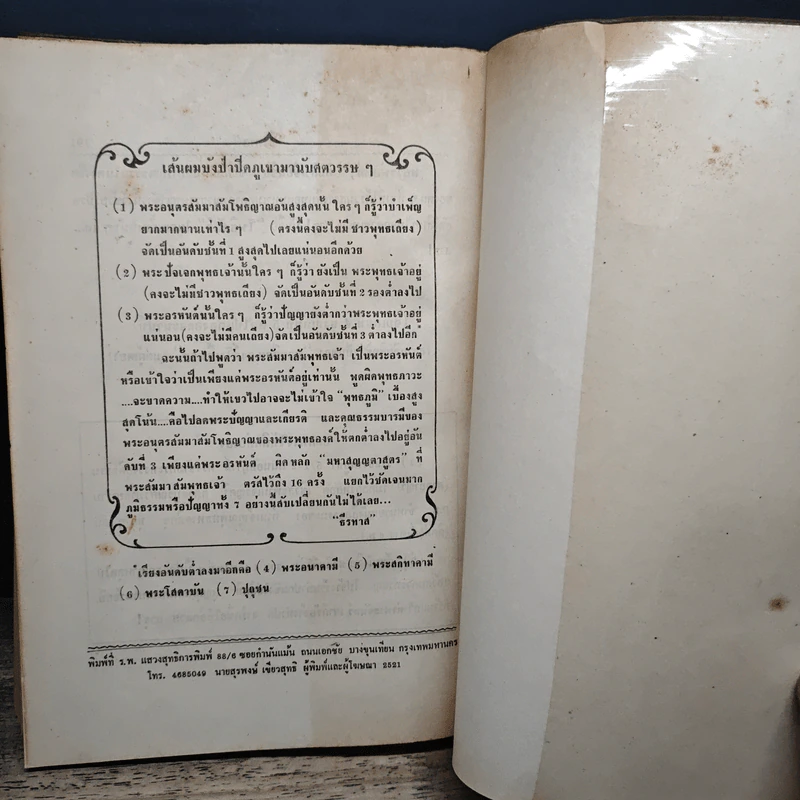 เส้นผมบังป่าปิดภูเขามานับศตวรรษ ๆ
(1) พระอนุตรสัมมาสัมโพธิญาณอันสูงสุดนั้น ใคร ๆ ก็รู้ว่าบำเพ็ญ
ยากมากนานเท่าไร ๆ (ตรงนี้คงจะไม่มีชาวพุทธเถียง)
จัดเป็นอันดับชั้นที่ 1 สูงสุดไปเลยแน่นอนอีกด้วย
(2) พระปัจเจกพุทธเจ้านั้นใคร ๆ ก็รู้ว่ายังเป็น พระพุทธเจ้าอยู่
(คงจะไม่มีชาวพุทธเถียง) จัดเป็นอันดับชั้นที่ 2 รองต่ำลงไป
(3) พระอรหันต์นั้นใคร ๆ ก็รู้ว่าปัญญายังต่ำกว่าพระพุทธเจ้าอยู่
แน่นอน(คงจะไม่มีคนเถียง)จัดเป็นอันดับชั้นที่ 3 ต่ำลงไปอีก
ฉะนั้นถ้าไปพูดว่า พระสัมมาสัมพุทธเจ้า เป็นพระอรหันต์
หรือเข้าใจว่าเป็นเพียงแค่พระอรหันต์อยู่เท่านั้น พูดผิดพุทธภาวะ
....จะขาดความ....ทำให้เขวไปอาจจะไม่เข้าใจ "พุทธภูมิ" เบื้องสูง
สุดโน้น....คือไปลดพระปัญญาและเกียรติ และคุณธรรมบารมีของ
พระอนุตรสัมมาสัมโพธิญาณของพระพุทธองค์ให้ตกต่ำลงไปอยู่อัน
ดับที่ 3 เพียงแค่พระอรหันต์ ผิดหลัก "มหาสุญญตาสูตร" ที่
พระสัมมาสัมพุทธเจ้า ตรัสไว้ถึง 16 ครั้ง แยกไว้ชัดเจนมาก
ภูมิธรรมหรือปัญญาทั้ง 7 อย่างนี้สับเปลี่ยนกันไม่ได้เลย...
"ธีรทาส"
เรียงอันดับต่ำลงมาอีกคือ (4) พระอนาคามี (5) พระสกิทาคามี
(6) พระโสดาบัน (7) ปุถุชน
พิมพ์ที่ ร.พ. แสวงสุทธิการพิมพ์ 88/6 ซอยกำนันแม้น ถนนเอกชัย บางขุนเทียน กรุงเทพมหานคร
โทร. 4685049 นายสุรพงษ์ เขียวสุทธิ ผู้พิมพ์และผู้โฆษณา 2521